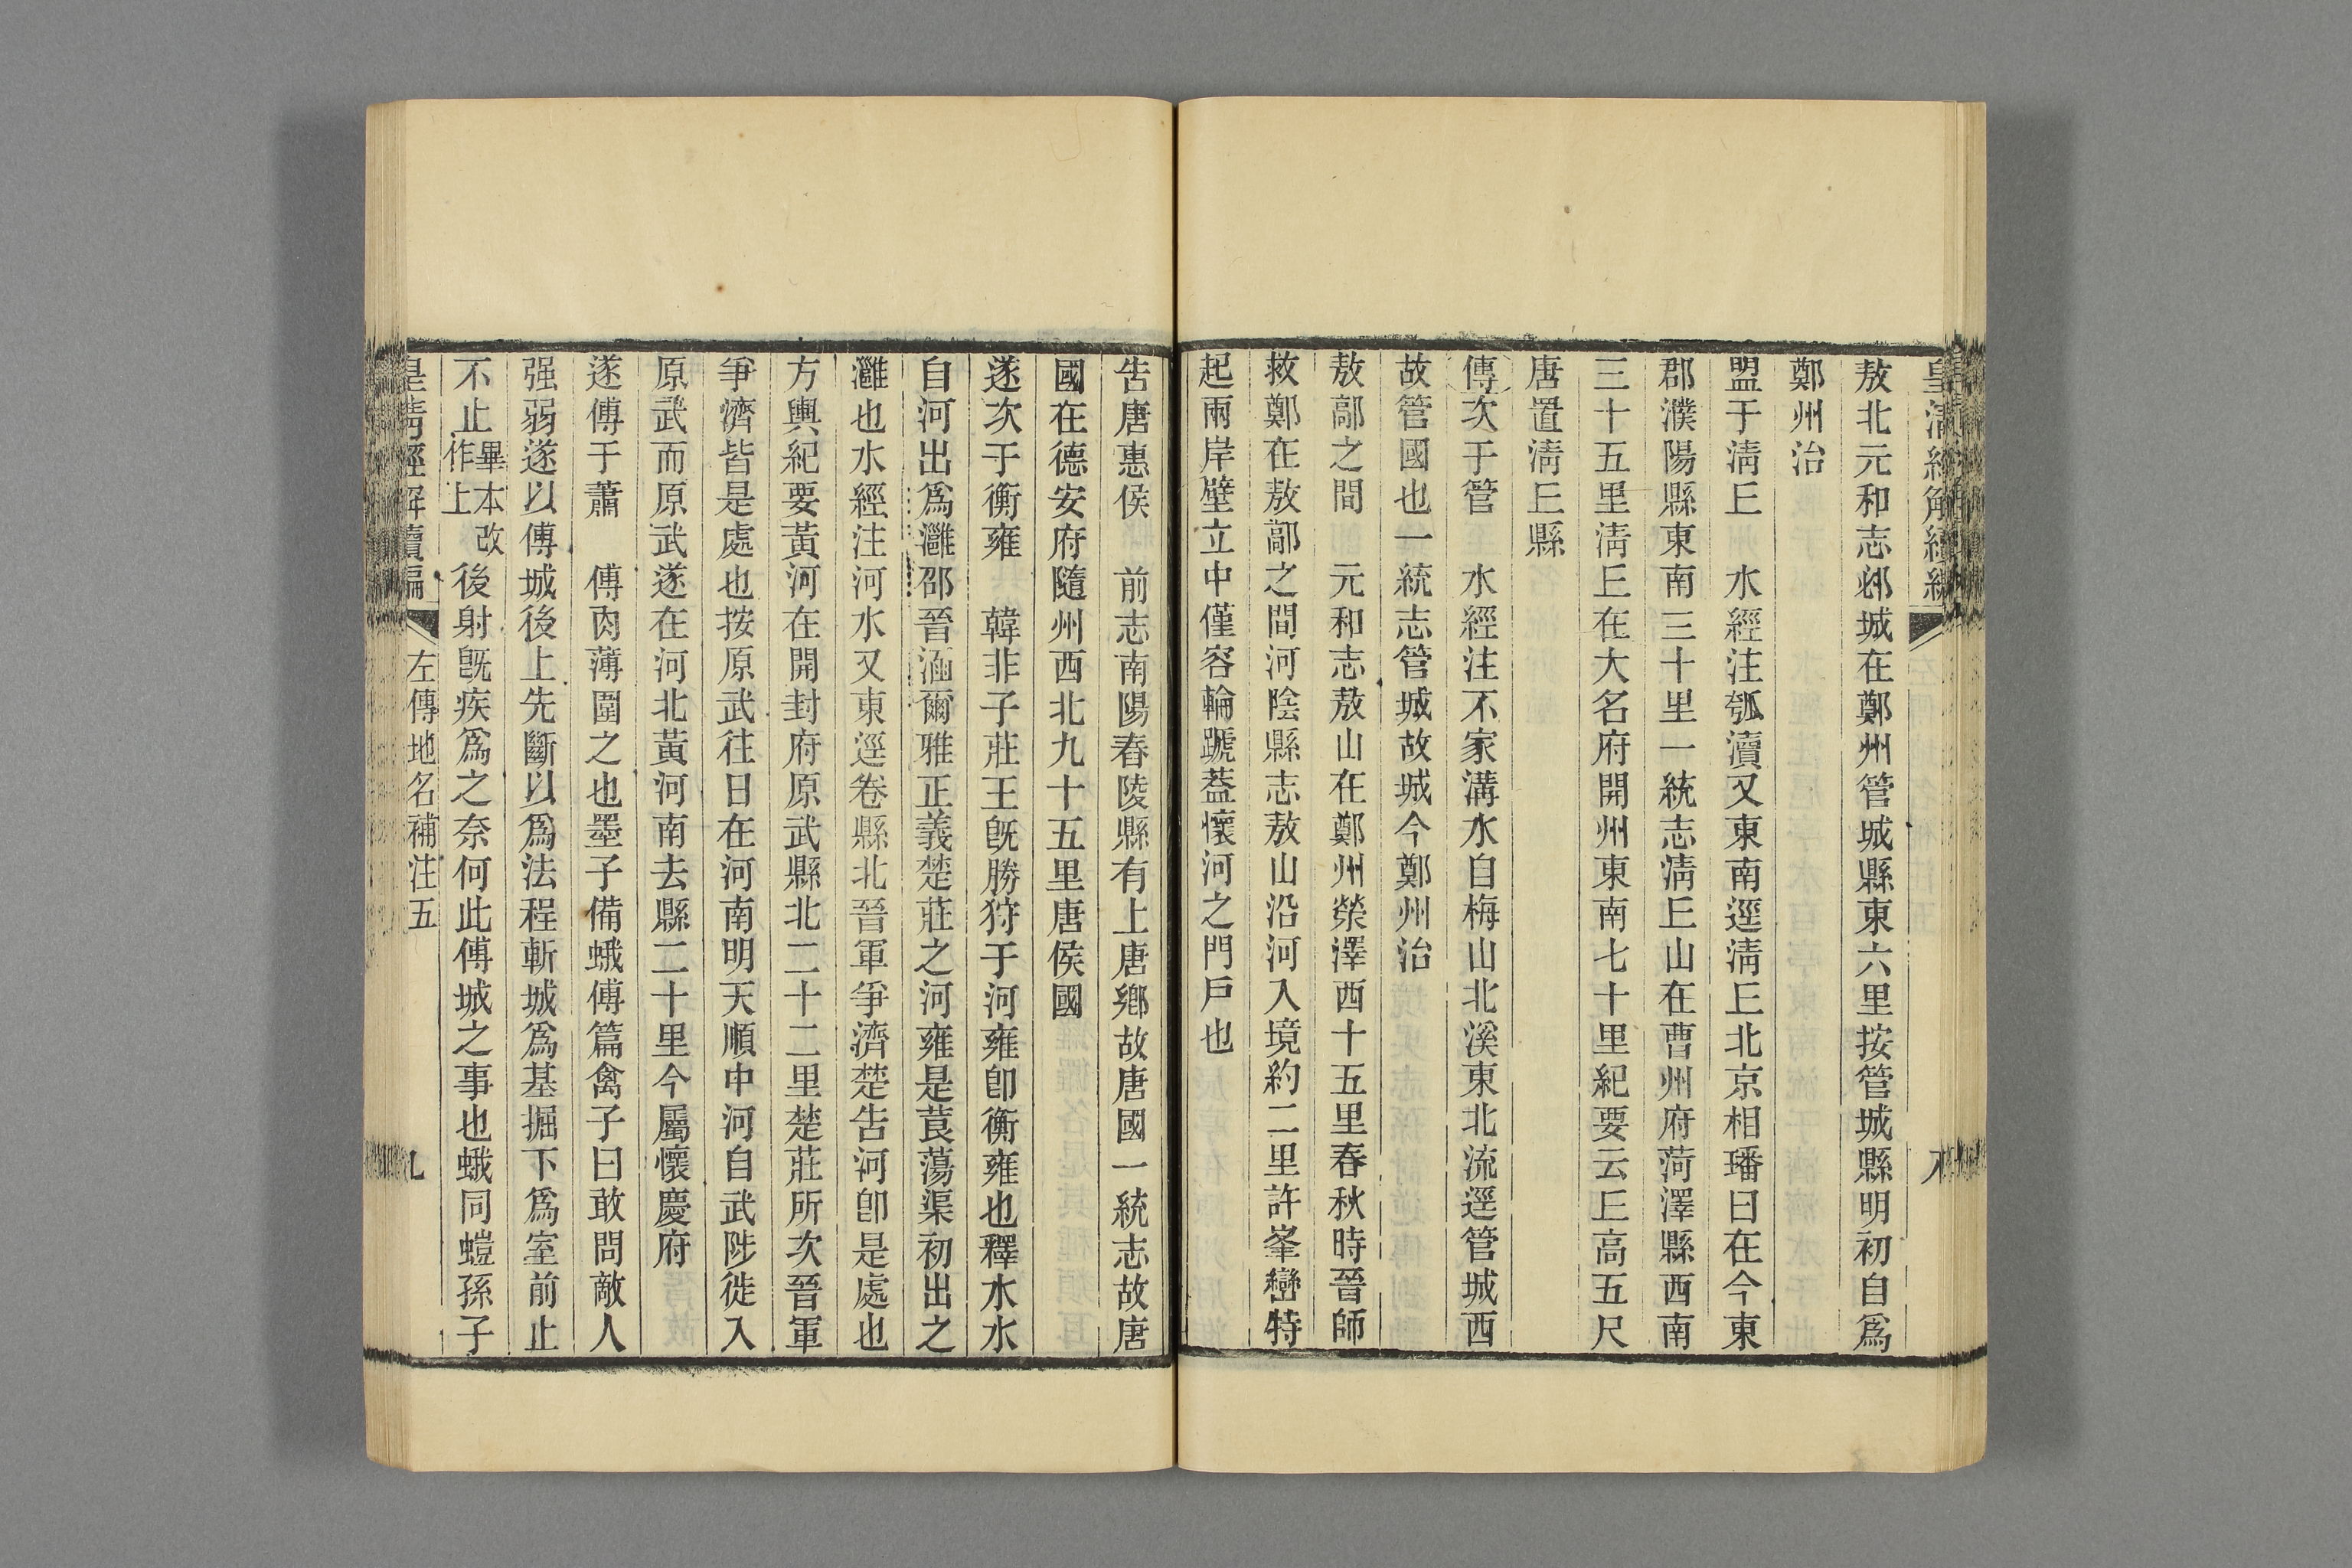 皇清經解續編
敖北元和志邲城在鄭州管城縣東六里按管城縣明初自爲
鄭州治
盟于淸丘　水經注瓠瀆又東南逕淸丘北京相璠曰在今東
郡濮陽縣東南三十里一統志淸丘山在曹州府菏澤縣西南
三十五里淸丘在大名府開州東南七十里紀要云丘高五尺
唐置淸丘縣
傳次于管　水經注不家溝水自梅山北溪東北流逕管城西
故管國也一統志管城故城今鄭州治
敖鄗之間　元和志敖山在鄭州滎澤西十五里春秋時晉師
救鄭在敖鄗之間河陰縣志敖山沿河入境約二里許峯巒特
起兩岸壁立中僅容輪蹏蓋懷河之門戸也
告唐惠侯　前志南陽舂陵縣有上唐鄕故唐國一統志故唐
國在德安府隨州西北九十五里唐侯國
遂次于衡雍　韓非子莊王旣勝狩于河雍卽衡雍也釋水水
自河出爲灉邵晉涵爾雅正義楚莊之河雍是莨蕩渠初出之
灉也水經注河水又東逕卷縣北晉軍爭濟楚吿河卽是處也
方輿紀要黃河在開封府原武縣北二十二里楚莊所次晉軍
爭濟皆是處也按原武往日在河南明天順中河自武陟徙入
原武而原武遂在河北黃河南去縣二十里今屬懷慶府
遂傅于蕭　傅肉薄圍之也墨子備蛾傅篇禽子曰敢問敵人
强弱遂以傅城後上先斷以爲法程斬城爲基掘下爲室前止
不止畢本改作上後射旣疾爲之奈何此傅城之事也蛾同螘孫子
皇淸經解續編　左傳地名補注五　九